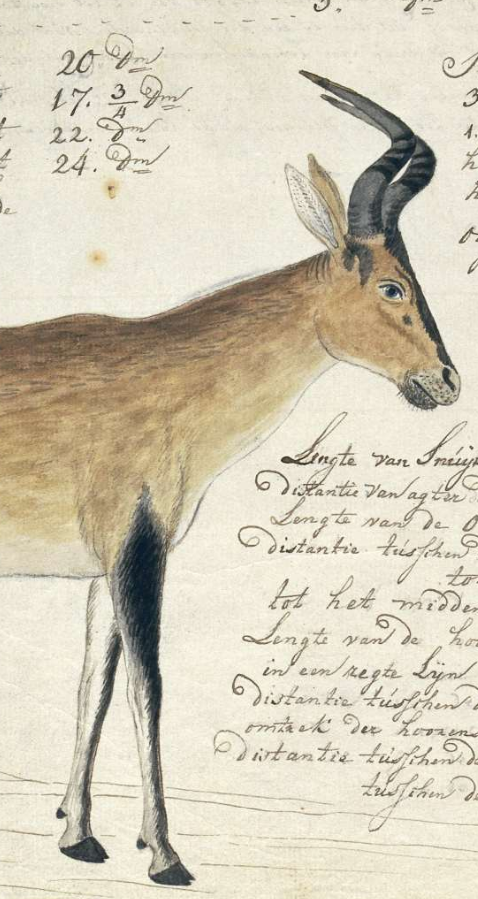 20 Dm
17. 3/4 Dm
22. Dm
24. Dm
Lengte van
distantie Van agter
Lengte van de
distantie tússchen
tot het midden
Lengte van de
in een regte Lyn
distantie tússchen
omtrek der hoorens
distantie tússchen
tússchen